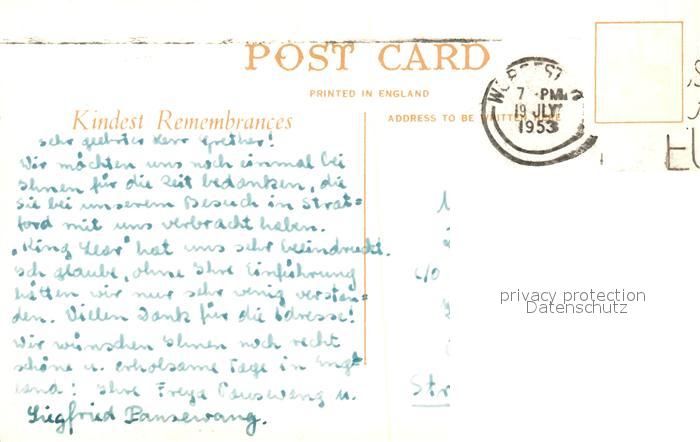 POST CARD
PRINTED IN ENGLAND
Kindest Remembrances
ADDRESS TO BE WRITTEN HERE
7 - PM
19 JLY
1953
sehr geehrter Herr Grether!
Wir möchten uns noch einmal bei
Ihnen für die Zeit bedanken, die
Sie bei unserem Besuch in Strat=
ford mit uns verbracht haben.
„King Lear" hat uns sehr beeindruckt.
Ich glaube, ohne Ihre Einführung
hätten wir nur sehr wenig verstan=
den. Vielen Dank für die Adresse!
Wir wünschen Ihnen noch recht
schöne u. erholsame Tage in Eng=
land! Ihre Freya Pausewang u.
Siegfried Pausewang.
c/o
Str
privacy protection
Datenschutz